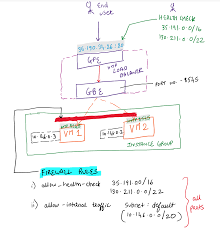 End
user
HEALTH CHECK
35.191.0.0/16
130.211.0.0/22
GFE
HTTP
LOAD
BALANCER
GBE
PORT NO. - 8545
VM 1
VM 2
INSTANCE GROUP
FIREWALL RULES
i) allow-health-check 35.191.0.0/16
130.211.0.0/22
ii) allow-internal traffic subnet: default
(10.146.0.0/20)
all
ports